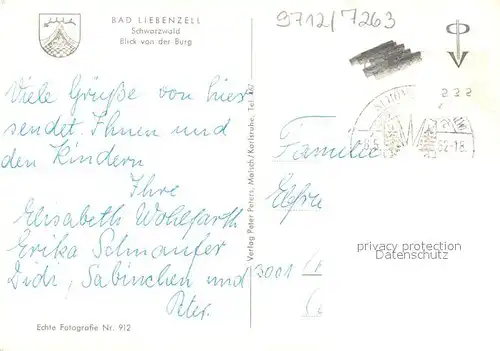 BAD LIEBENZELL
Schwarzwald
Blick von der Burg
9712/7263
Viele Grüße von hier
sendet Ihnen und
den Kindern
Ihre
Elisabeth Wohlfarth
Erika Schnaufer
Didi, Sabinchen und
Peter.
Familie
3001
privacy protection
Datenschutz
Verlag Peter Peters, Malsch/Karlsruhe, Tel. 367
Echte Fotografie Nr. 912